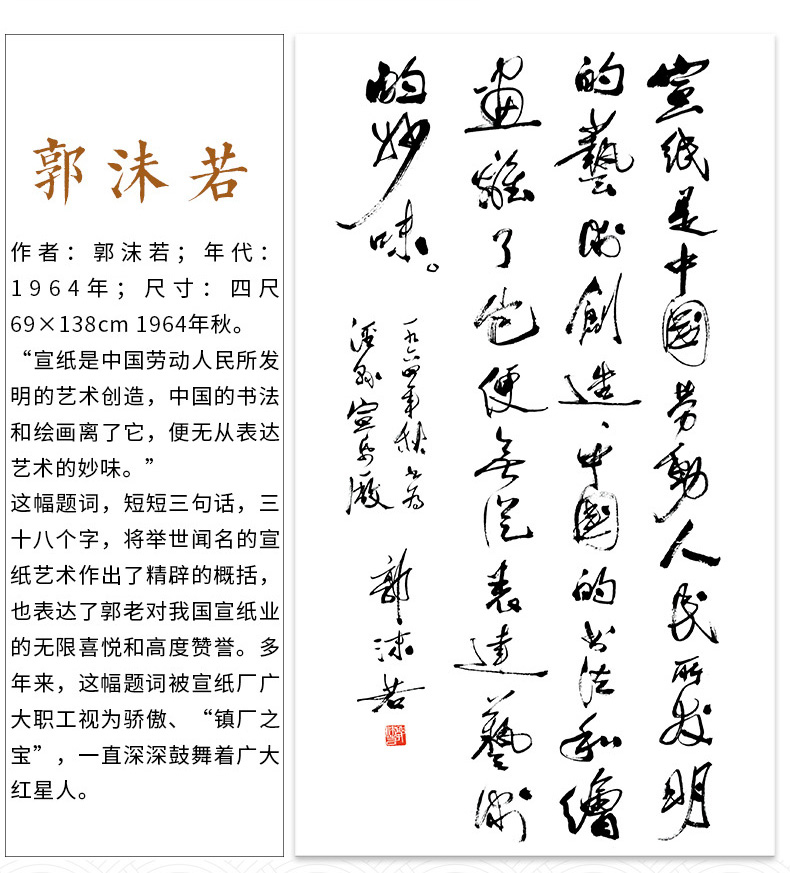 郭沫若
作者：郭沫若；年代：
1964年；尺寸：四尺
69×138cm 1964年秋。
“宣纸是中国劳动人民所发
明的艺术创造，中国的书法
和绘画离了它，便无从表达
艺术的妙味。”
这幅题词，短短三句话，三
十八个字，将举世闻名的宣
纸艺术作出了精辟的概括，
也表达了郭老对我国宣纸业
的无限喜悦和高度赞誉。多
年来，这幅题词被宣纸厂广
大职工视为骄傲、“镇厂之
宝”，一直深深鼓舞着广大
红星人。
宣紙是中國劳動人民所发明
的藝術創造、中國的书法和繪
畫離了它便無從表達藝術
的妙味。
一九六四年秋书为
泾县宣纸厰
郭沫若